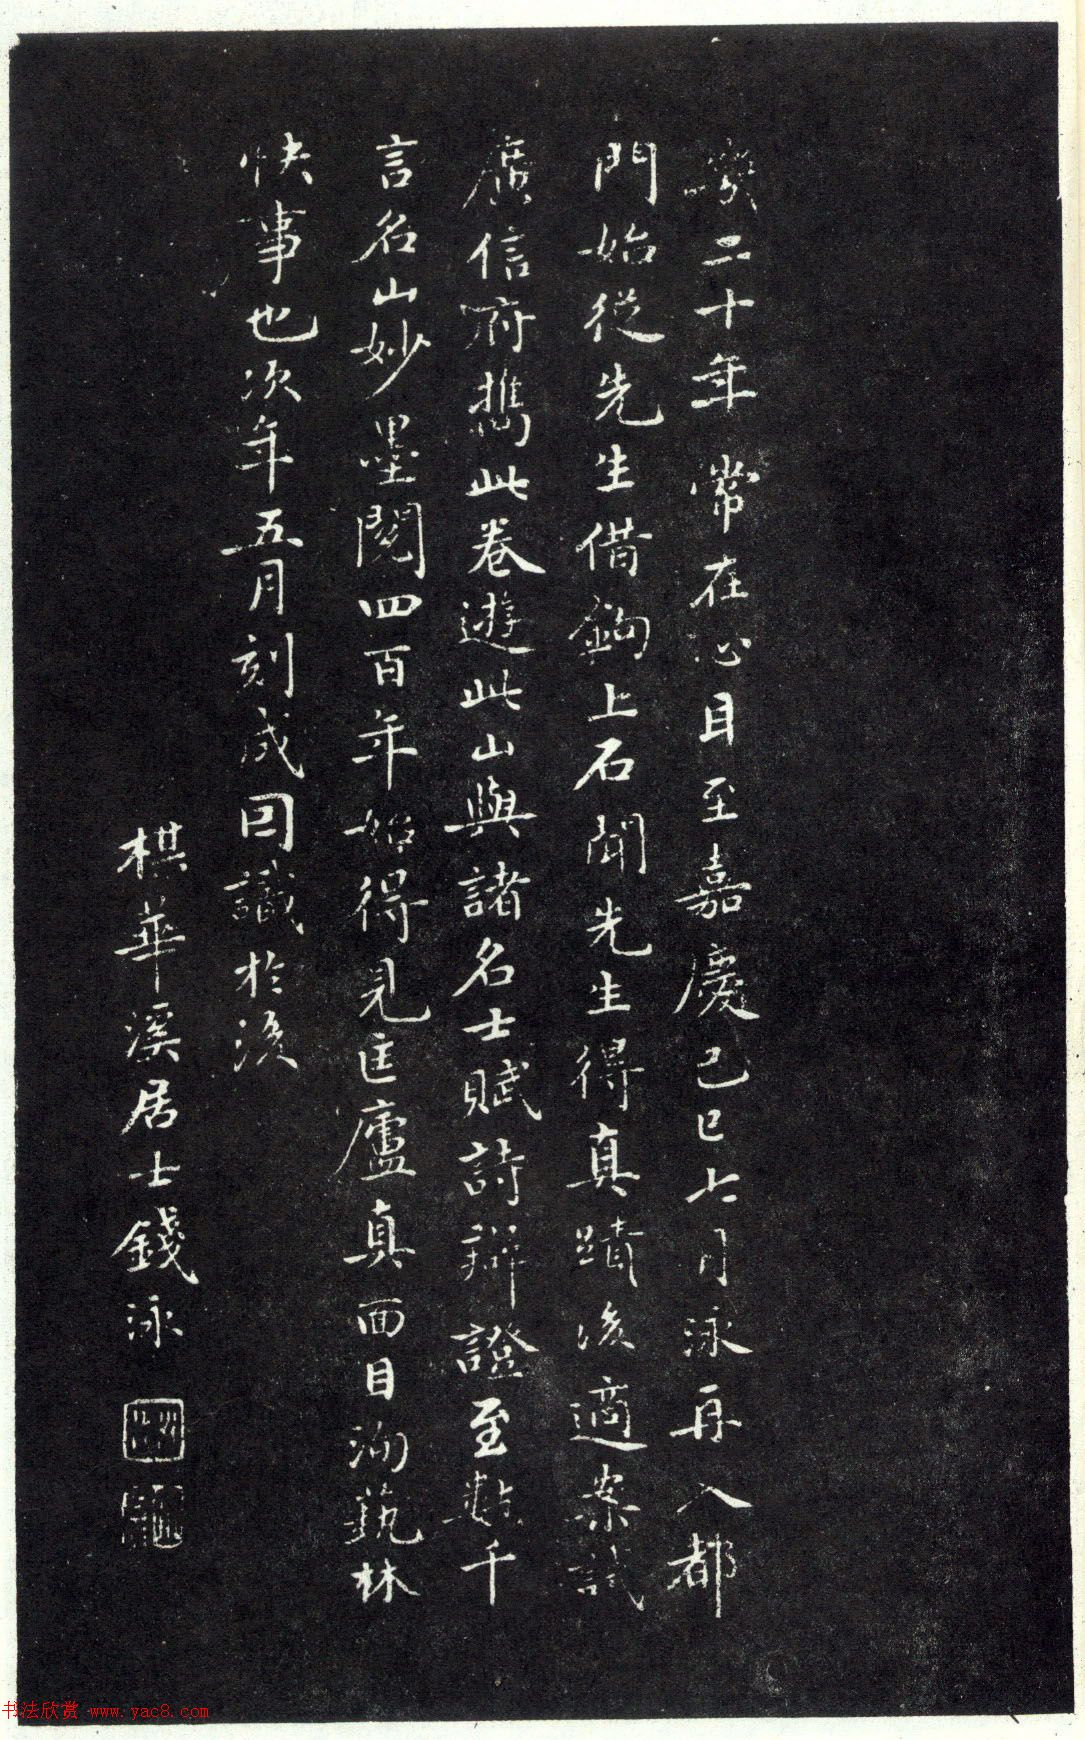 幾二十年常在心目至嘉慶己巳七月泳再入都
門始從先生借鉤上石聞先生得真蹟後適案試
廣信府攜此卷遊此山與諸名士賦詩辯證至數千
言名山妙墨閱四百年始得見匡廬真面目洵藝林
快事也次年五月刻成因識於後
楳華溪居士錢泳
书法欣赏 www.yac8.com